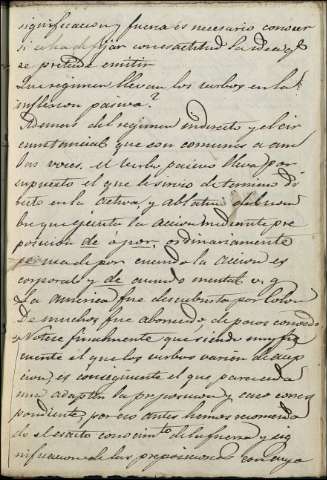 significacion y fuerza es necesario conocer
si se ha de fijar con esactitud la idea q.
se pretende emitir
Que regimen llevan los verbos en la
inflexion pasiva?
Ademas del regimen indirecto y el cir
cunstancial que son comunes a am
bas voces, el verbo pasivo lleva por
supuesto el que le sirvio de termino di
recto en la activa, y ablativo del nom
bre que ejecuta la accion mediante pre
posicion de o por, ordinariamente
se usa de por cuando la accion es
corporal y de cuando mental v. g.
La America fue descubierta por Colon
De muchos fue aborrecido, de pocos conocido
Notese finalmente que siendo muy fre
cuente el que los verbos varien de acep
cion, es consiguiente el que para cada
una adapten la preposicion y caso corres
pondiente, por eso antes hemos recomenda
do el exacto conocim.to de la fuerza y sig
nificacion de las preposiciones con cuya